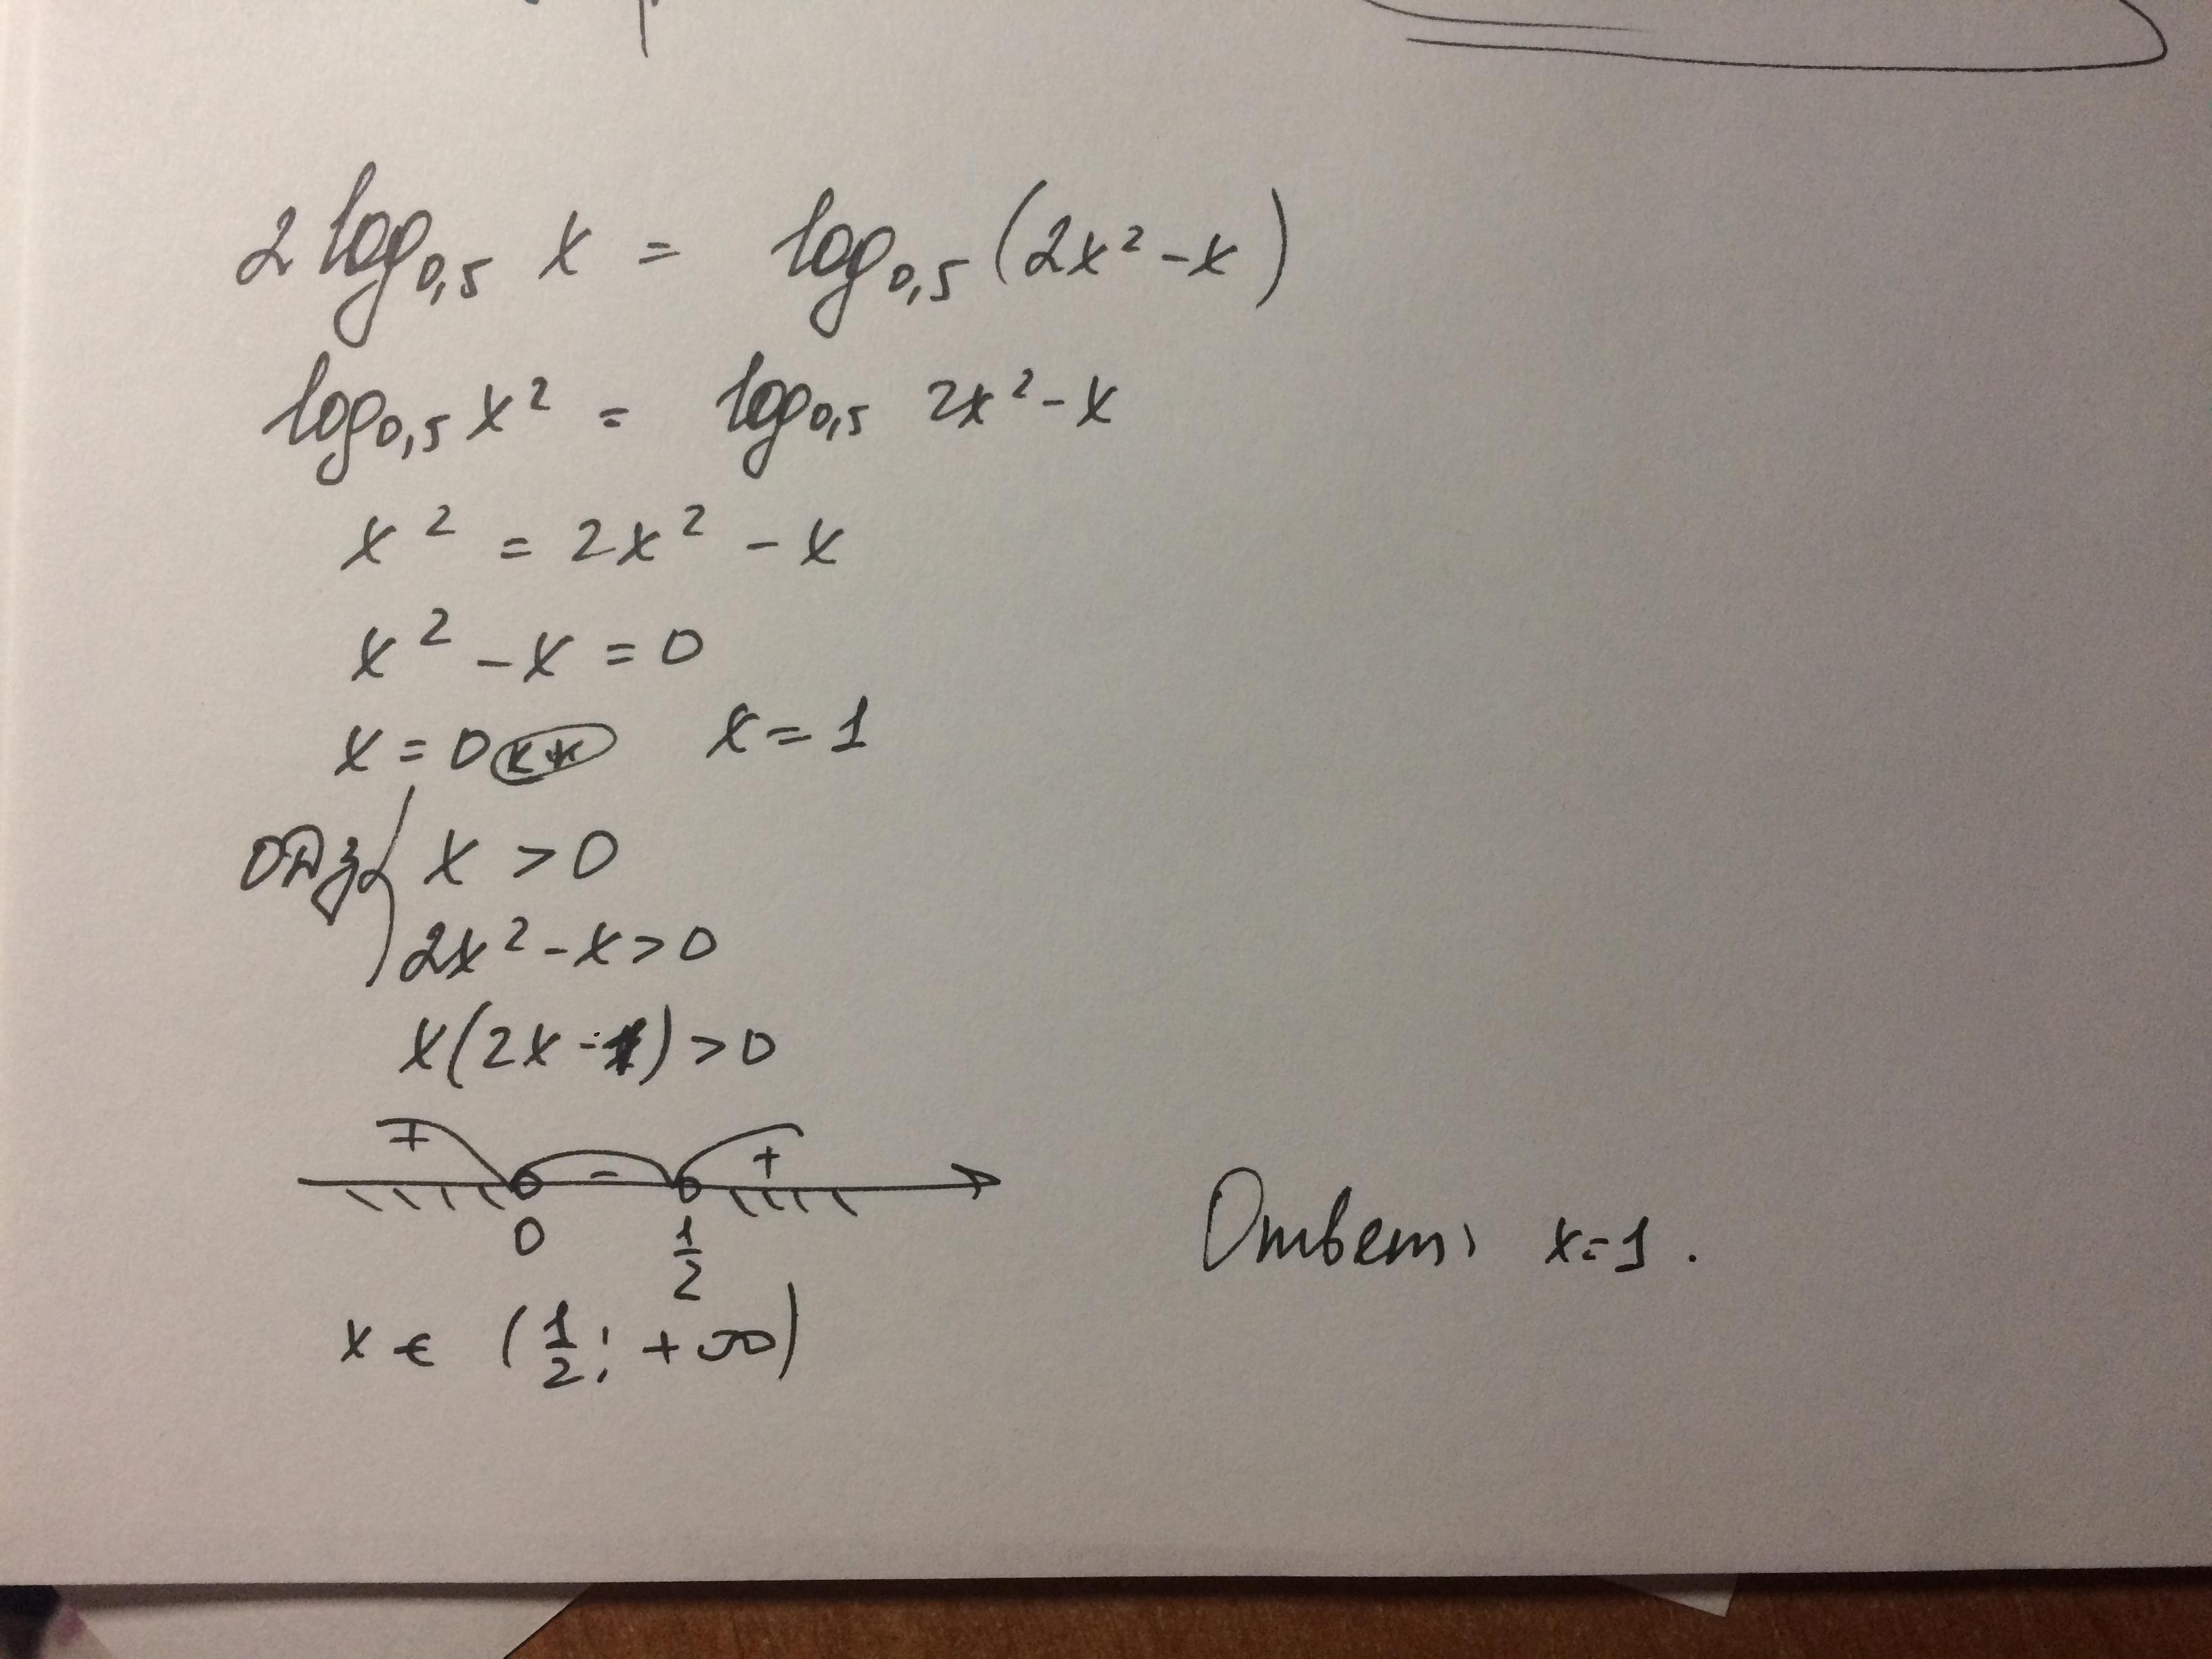 2 log₀,₅ x = log₀,₅ (2x² - x)
log₀,₅ x² = log₀,₅ 2x² - x
x² = 2x² - x
x² - x = 0
x = 0 x = 1
ОДЗ { x > 0
2x² - x > 0
x(2x - 1) > 0
+ - +
0 1/2
x ∈ (1/2; +∞)
Ответ: x = 1.